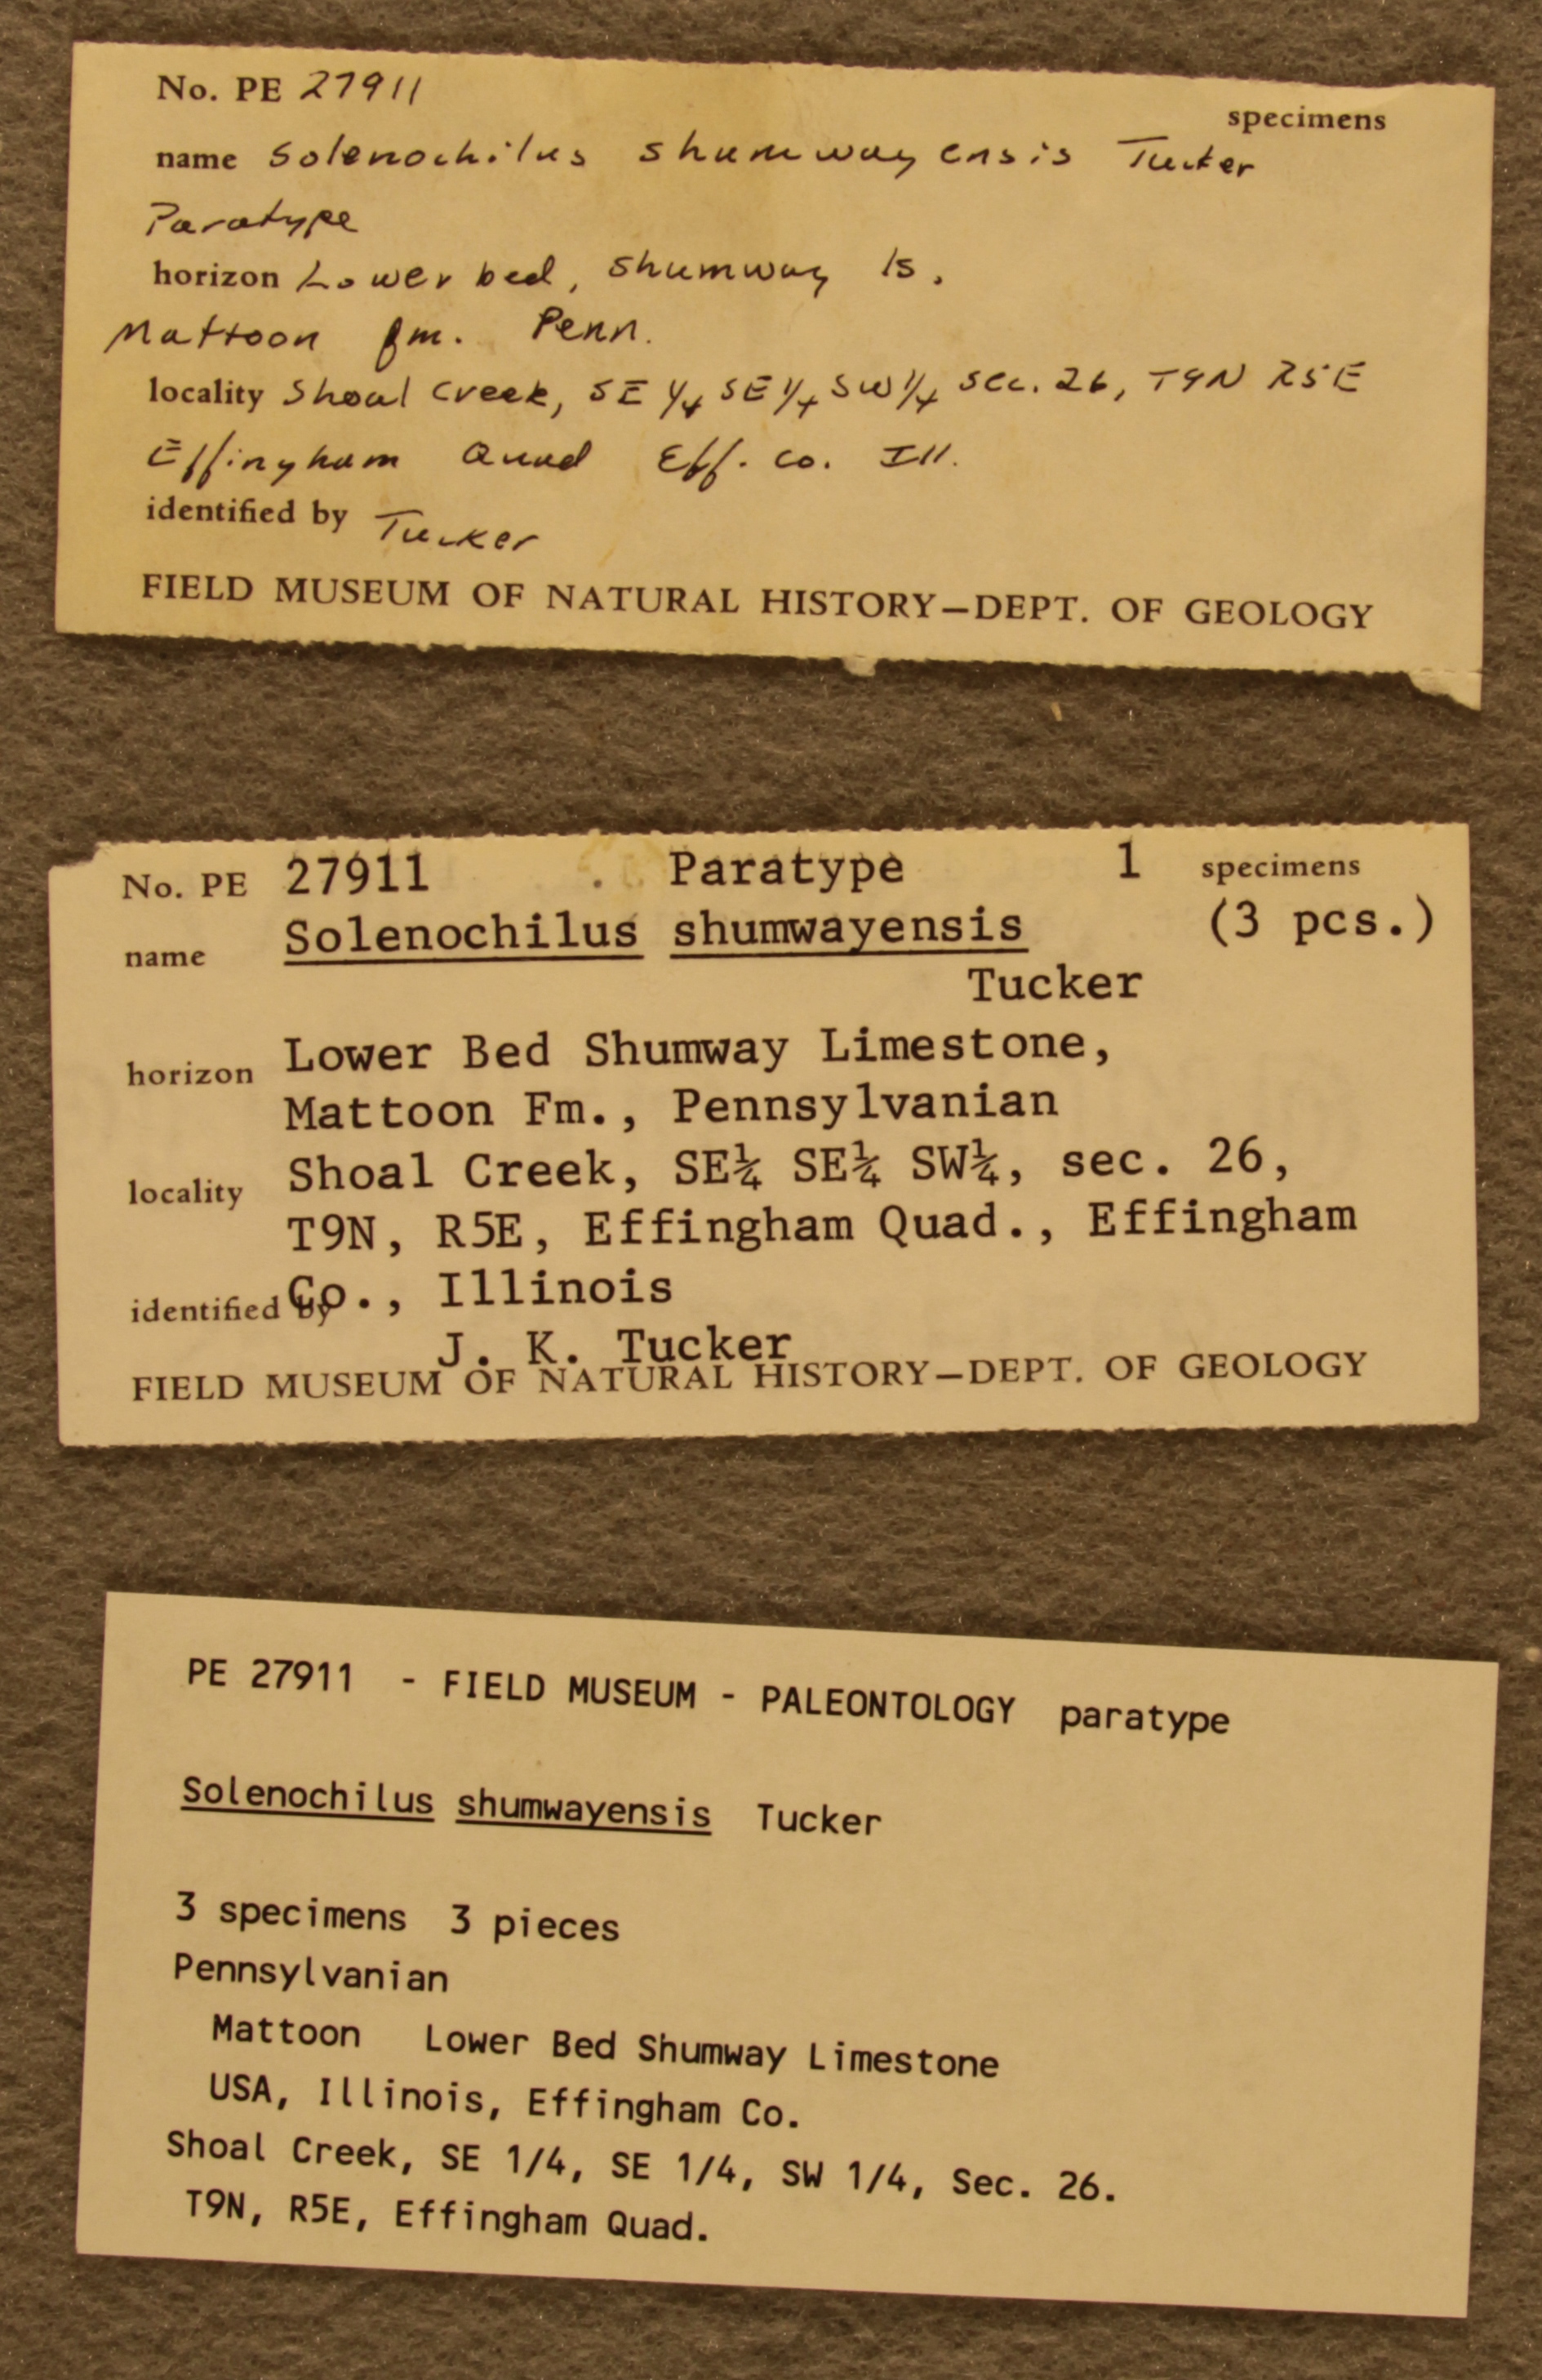 No. PE 27911
specimens
name Solenochilus shumwayensis Tucker
Paratype
horizon Lower bed, Shumway ls.
Mattoon fm. Penn.
locality Shoal Creek, SE 1/4 SE 1/4 SW 1/4 sec. 26, T9N R5E
Effingham Quad Eff. Co. Ill.
identified by Tucker
FIELD MUSEUM OF NATURAL HISTORY—DEPT. OF GEOLOGY
No. PE 27911 Paratype 1 specimens
name Solenochilus shumwayensis (3 pcs.)
Tucker
horizon Lower Bed Shumway Limestone,
Mattoon Fm., Pennsylvanian
locality Shoal Creek, SE¼ SE¼ SW¼, sec. 26,
T9N, R5E, Effingham Quad., Effingham
identified by Co., Illinois
J. K. Tucker
FIELD MUSEUM OF NATURAL HISTORY—DEPT. OF GEOLOGY
PE 27911 - FIELD MUSEUM - PALEONTOLOGY paratype
Solenochilus shumwayensis Tucker
3 specimens 3 pieces
Pennsylvanian
Mattoon Lower Bed Shumway Limestone
USA, Illinois, Effingham Co.
Shoal Creek, SE 1/4, SE 1/4, SW 1/4, Sec. 26.
T9N, R5E, Effingham Quad.